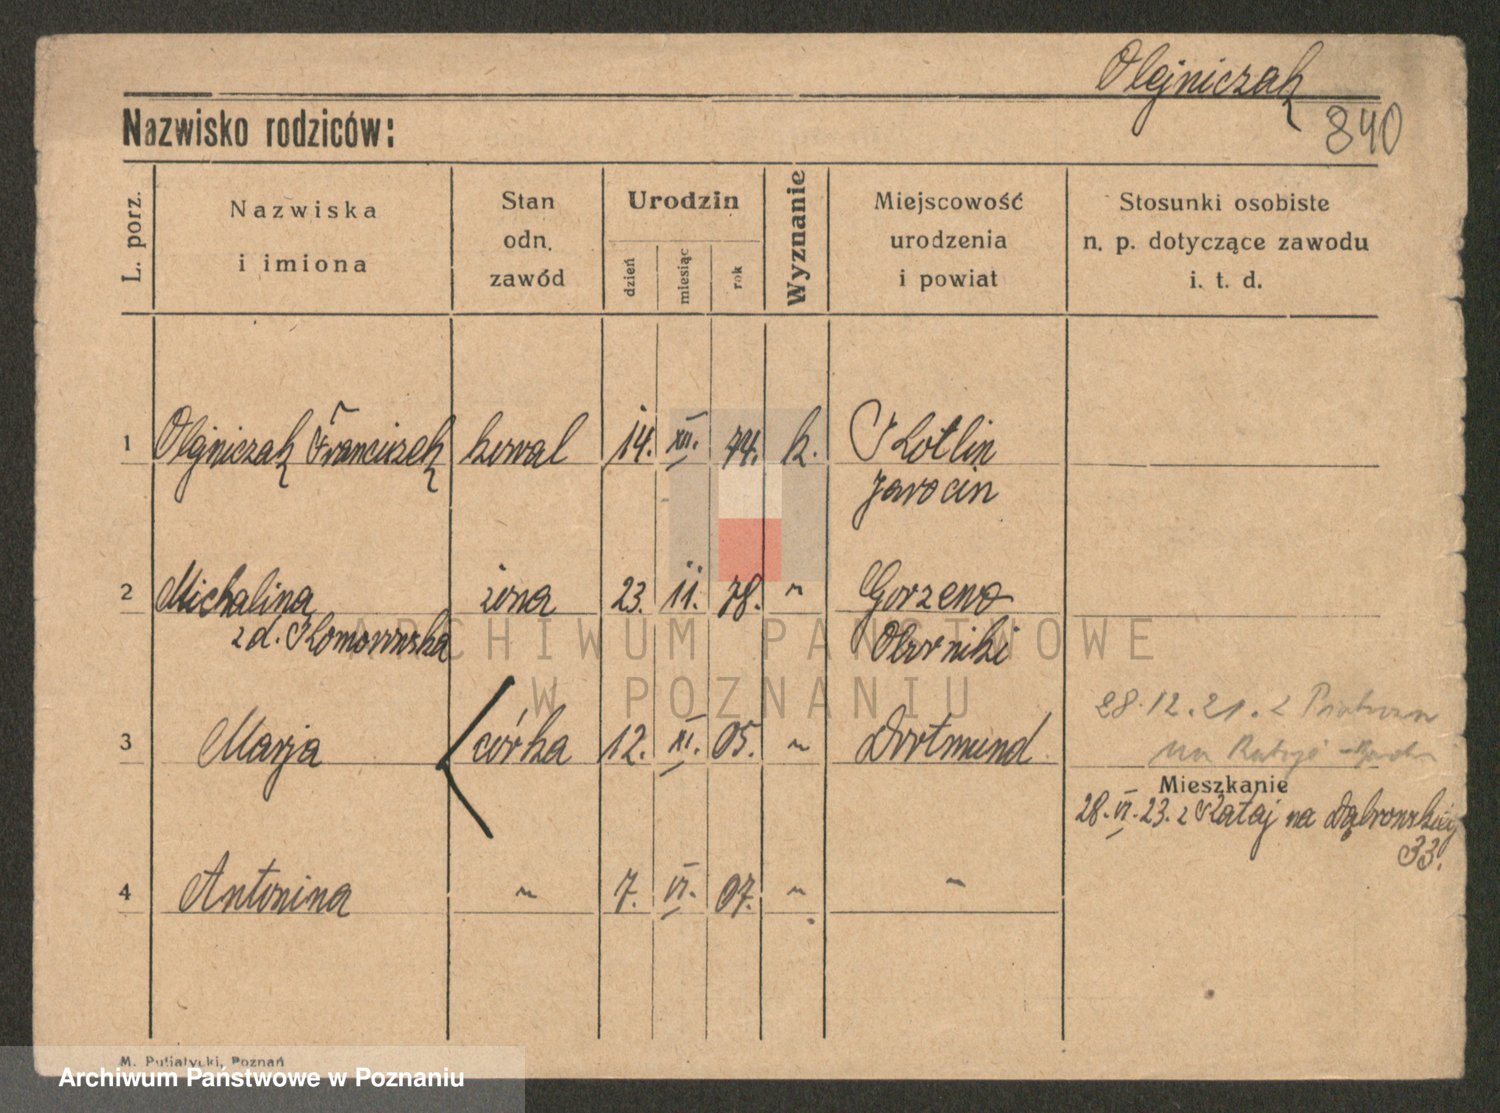 Olejniczak
840
Nazwisko rodziców:
L. porz.
Nazwiska
i imiona
Stan
odn.
zawód
Urodzin
dzień
miesiąc
rok
Wyznanie
Miejscowość
urodzenia
i powiat
Stosunki osobiste
n. p. dotyczące zawodu
i. t. d.
1 Olejniczak Franciszek kowal 14. XII. 74. k. Kotlin
Jarocin
2 Michalina żona 23. II. 78. " Gorzewo
zd. Komowska Oborniki
28.12.21. z
3 Marja córka 12. XI. 05. " Dortmund
na Rataje
Mieszkanie
28. VI. 23. z Rataj na Dąbrowskiej
33.
4 Antonina " 7. VI. 07. " "
M. Putiatycki, Poznań
ARCHIWUM PAŃSTWOWE
W POZNANIU
Archiwum Państwowe w Poznaniu